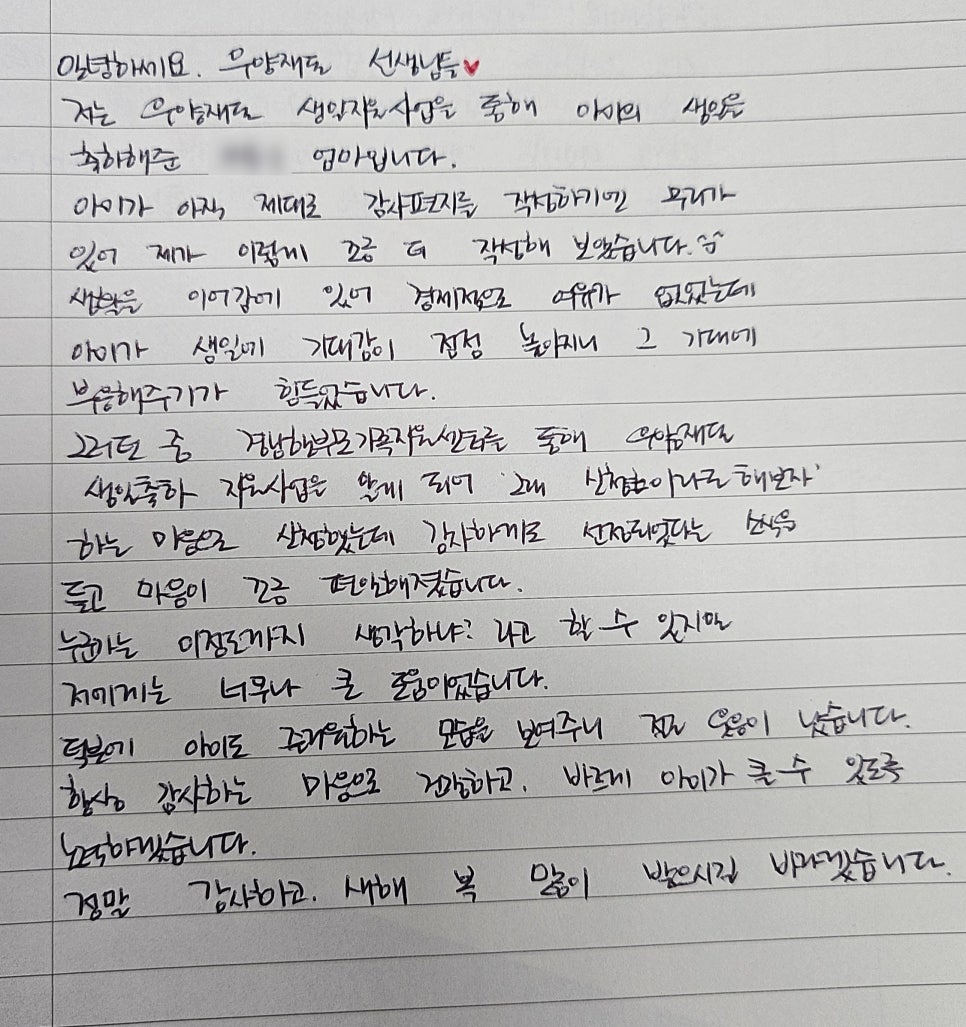 안녕하세요. 우양재단 선생님들♥
저는 우양재단 생일지원사업을 통해 아이의 생일을
축하해준 엄마입니다.
아이가 아직 제대로 감사편지를 작성하기엔 무리가
있어 제가 이렇게 조금 더 작성해 보았습니다.^^
생활을 이어감에 있어 경제적으로 여유가 없었는데
아이가 생일에 기대감이 점점 높아지니 그 기대에
부응해주기가 힘들었습니다.
그러던 중 경남한부모가족지원센터를 통해 우양재단
생일축하 지원사업을 알게 되어 '그래 신청이라도 해보자'
하는 마음으로 신청했는데 감사하게도 선정되었다는 소식을
듣고 마음이 조금 편안해졌습니다.
누군가는 이정도까지 생각하냐? 라고 할 수 있지만
저에게는 너무나 큰 도움이었습니다.
덕분에 아이도 즐거워하는 모습을 보여주니 절로 웃음이 났습니다.
항상 감사하는 마음으로 건강하고, 바르게 아이가 클 수 있도록
노력하겠습니다.
정말 감사하고, 새해 복 많이 받으시길 바라겠습니다.